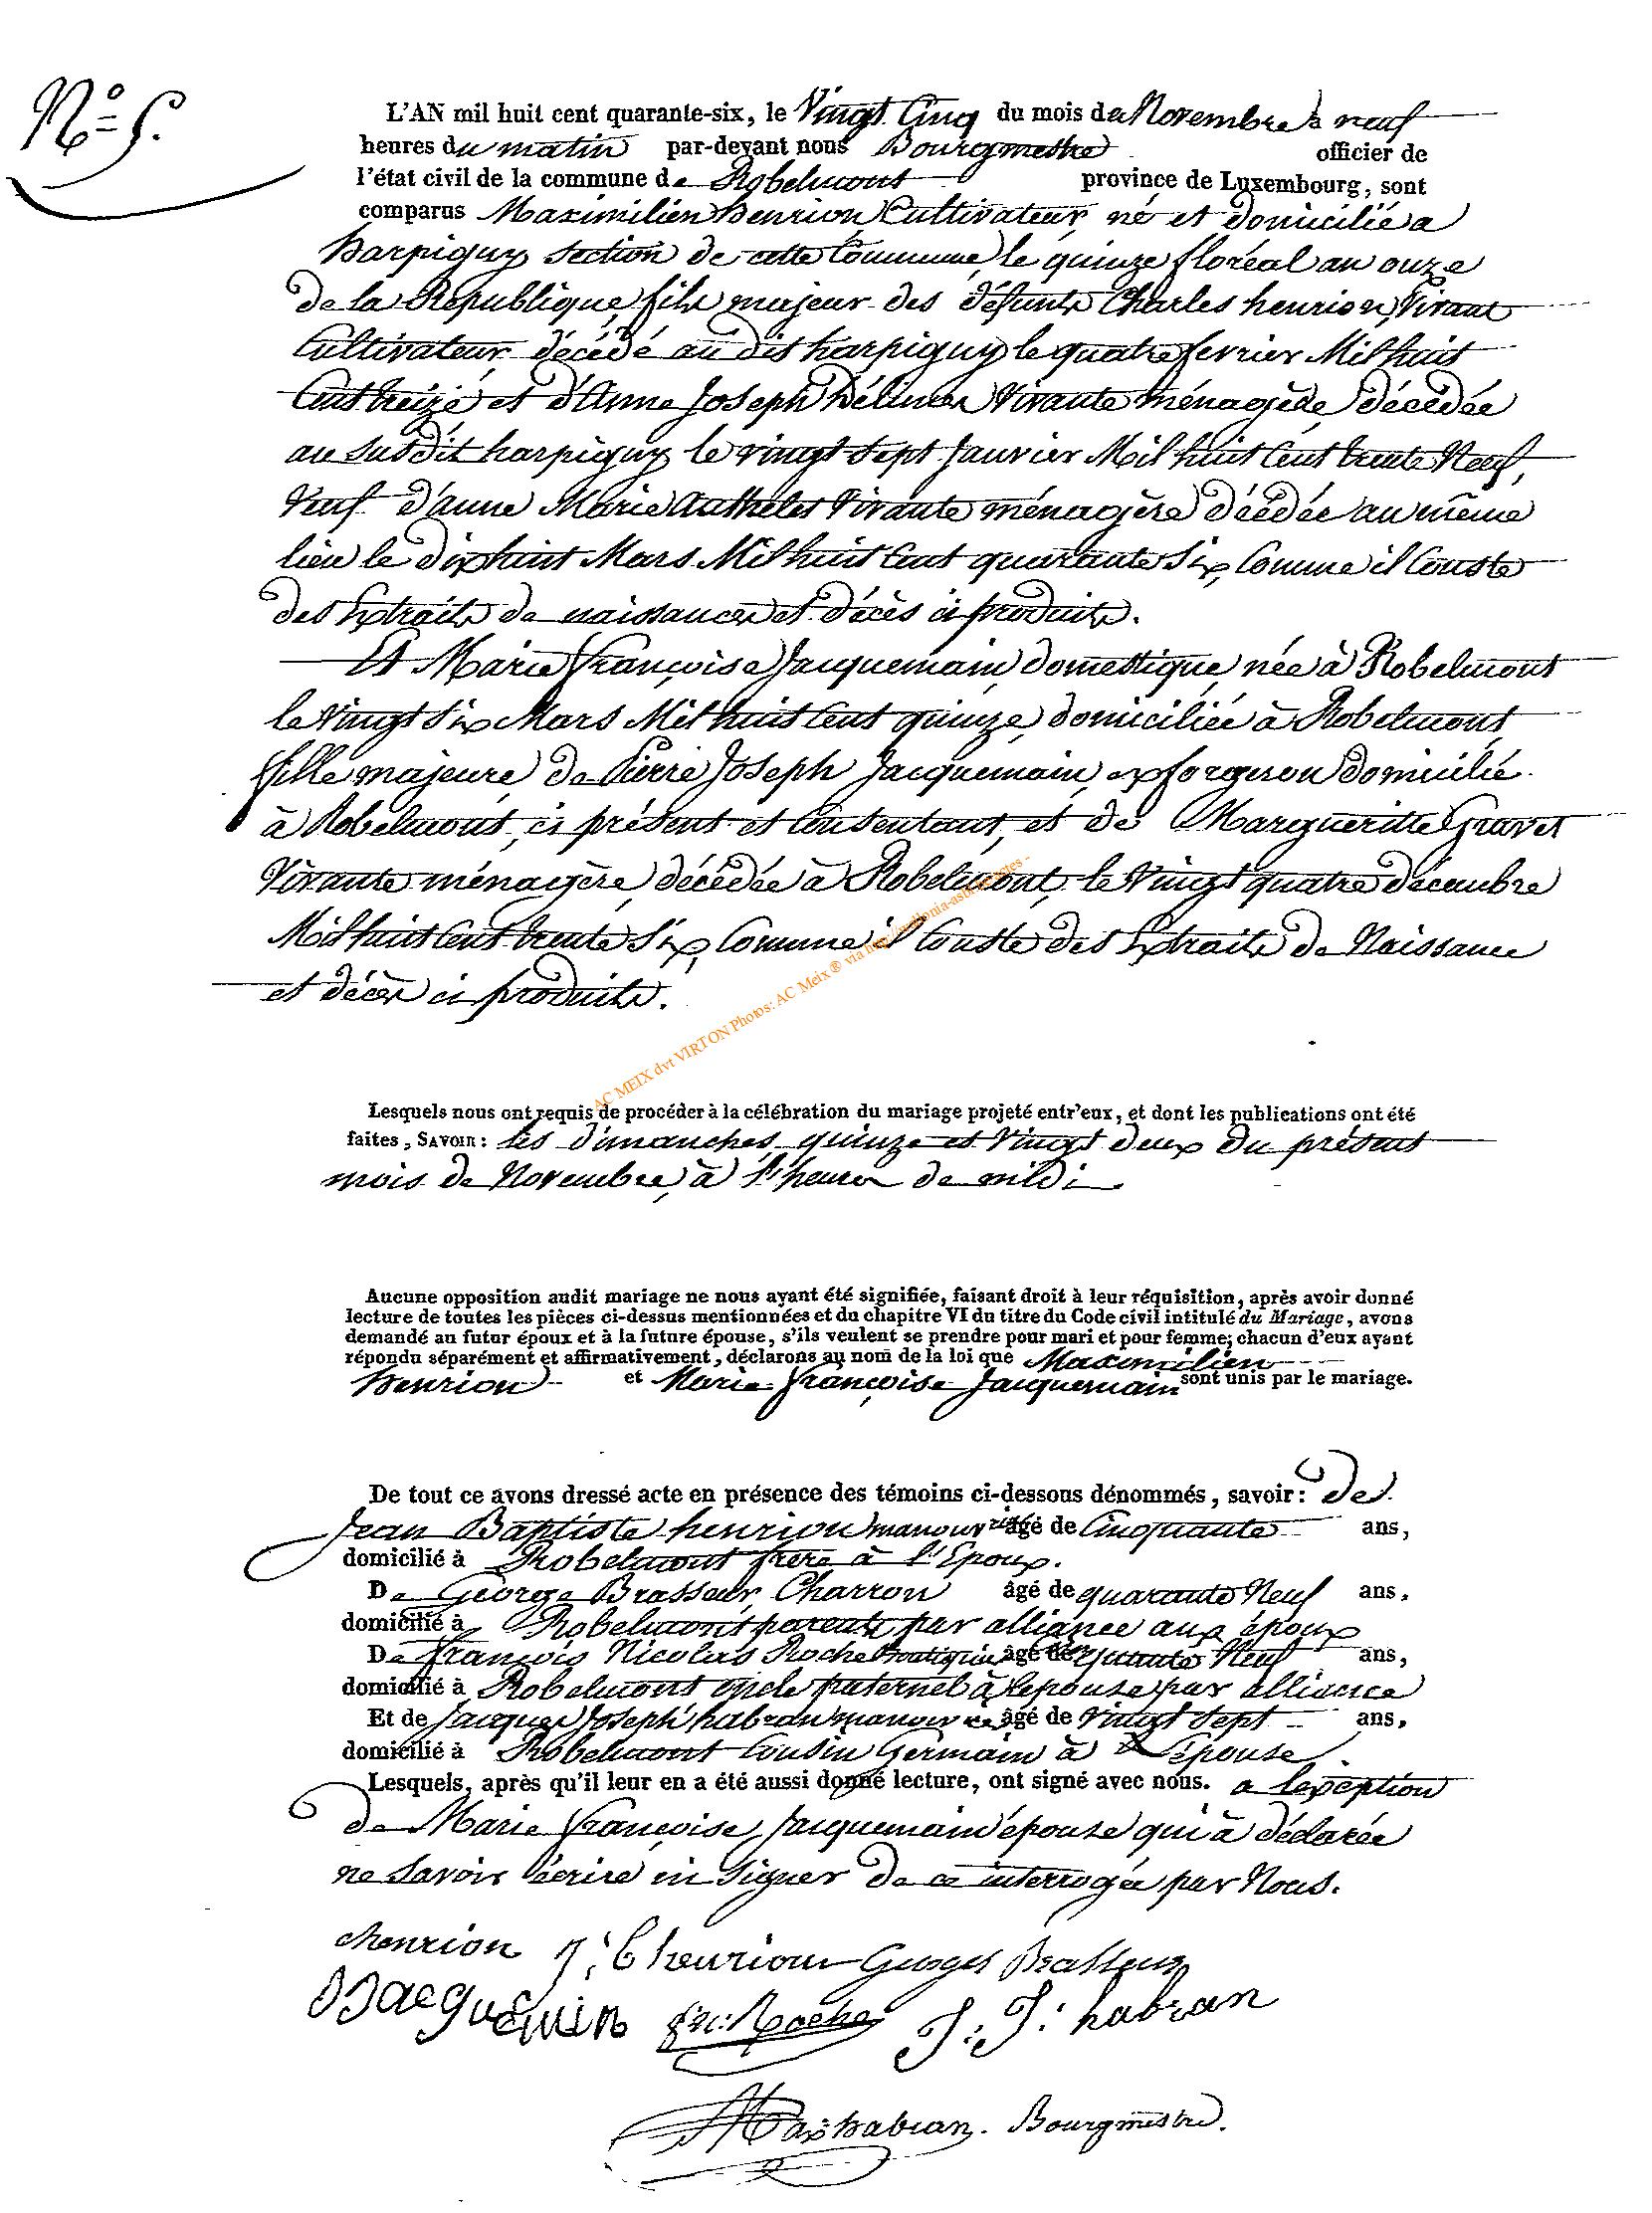 N° 5.
L'AN mil huit cent quarante-six, le Vingt Cinq du mois de Novembre à neuf
heures du matin par-devant nous Bourgmestre officier de
l'état civil de la commune de Robelmont province de Luxembourg, sont
comparus Maximilien henrion, Cultivateur, né et domicilié a
harpigny section de cette Commune, le quinze floréal an onze
de la République, fils majeur des défunts Charles henrion, Vivant
Cultivateur, décédé au dit harpigny le quatre fevrier Mil huit
Cent treize et d'Anne Joseph Vivante ménagède, décédée
au susdit harpigny le vingt sept Janvier Mil huit Cent trente Neuf,
Veuf d'anne Marie Vivante ménagère, décédée au même
lieu le dix huit Mars Mil huit Cent quarante Six, Comme il Conste
des Extraits de naissances et décès ci produits.
Et Marie françoise Jacquemain, domestique, née à Robelmont
le Vingt Six Mars Mil huit Cent quinze, domiciliée à Robelmont,
fille majeure de Pierre Joseph Jacquemain, ex forgeron domicilié
à Robelmont, ci présent et Consentant, et de Margueritte Gravet
Vivante ménagère, décédée à Robelmont, le Vingt quatre décembre
Mil huit Cent trente Six, Comme il Conste des Extraits de Naissance
et décès ci produits.
AC MEIX dvt VIRTON Photos: AC Meix ® via
Lesquels nous ont requis de procéder à la célébration du mariage projeté entr'eux, et dont les publications ont été
faites, SAVOIR: les dimanches quinze et Vingt deux du présent
mois de Novembre, à l'heure de midi.
Aucune opposition audit mariage ne nous ayant été signifiée, faisant droit à leur réquisition, après avoir donné
lecture de toutes les pièces ci-dessus mentionnées et du chapitre VI du titre du Code civil intitulé du Mariage, avons
demandé au futur époux et à la future épouse, s'ils veulent se prendre pour mari et pour femme; chacun d'eux ayant
répondu séparément et affirmativement, déclarons au nom de la loi que Maximilien
henrion et Marie françoise Jacquemain sont unis par le mariage.
De tout ce avons dressé acte en présence des témoins ci-dessous dénommés, savoir: De
Jean Baptiste henrion manouvrier âgé de Cinquante ans,
domicilié à Robelmont frère à l'Epoux.
De George Brasseur, Charron âgé de quarante Neuf ans,
domicilié à Robelmont parent par alliance aux époux
De françois Nicolas Roche âgé de quarante Neuf ans,
domicilié à Robelmont oncle paternel à lepouse par alliance
Et de Jacques Joseph habran manouvre âgé de vingt sept ans,
domicilié à Robelmont Cousin Germain à L'épouse.
Lesquels, après qu'il leur en a été aussi donné lecture, ont signé avec nous. a lexception
de Marie françoise Jacquemain épouse qui à déclarée
ne savoir écrire ni Signer de ce interrogée par Nous.
chenrion J: B henrion Georges Brasseur
Jacquemin Roche J: J: habran
Max habran. Bourgmestre.